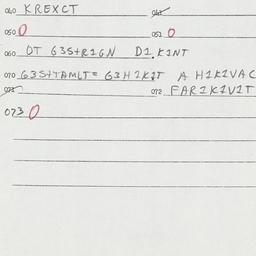 040 KREXCT
050 0 051 0
060 OT G3S+R1GN D1.K1NT
070 G3S+TAMLT= G3H1K1T A H1K1VAC
072 FAR1K1V1T
073 0